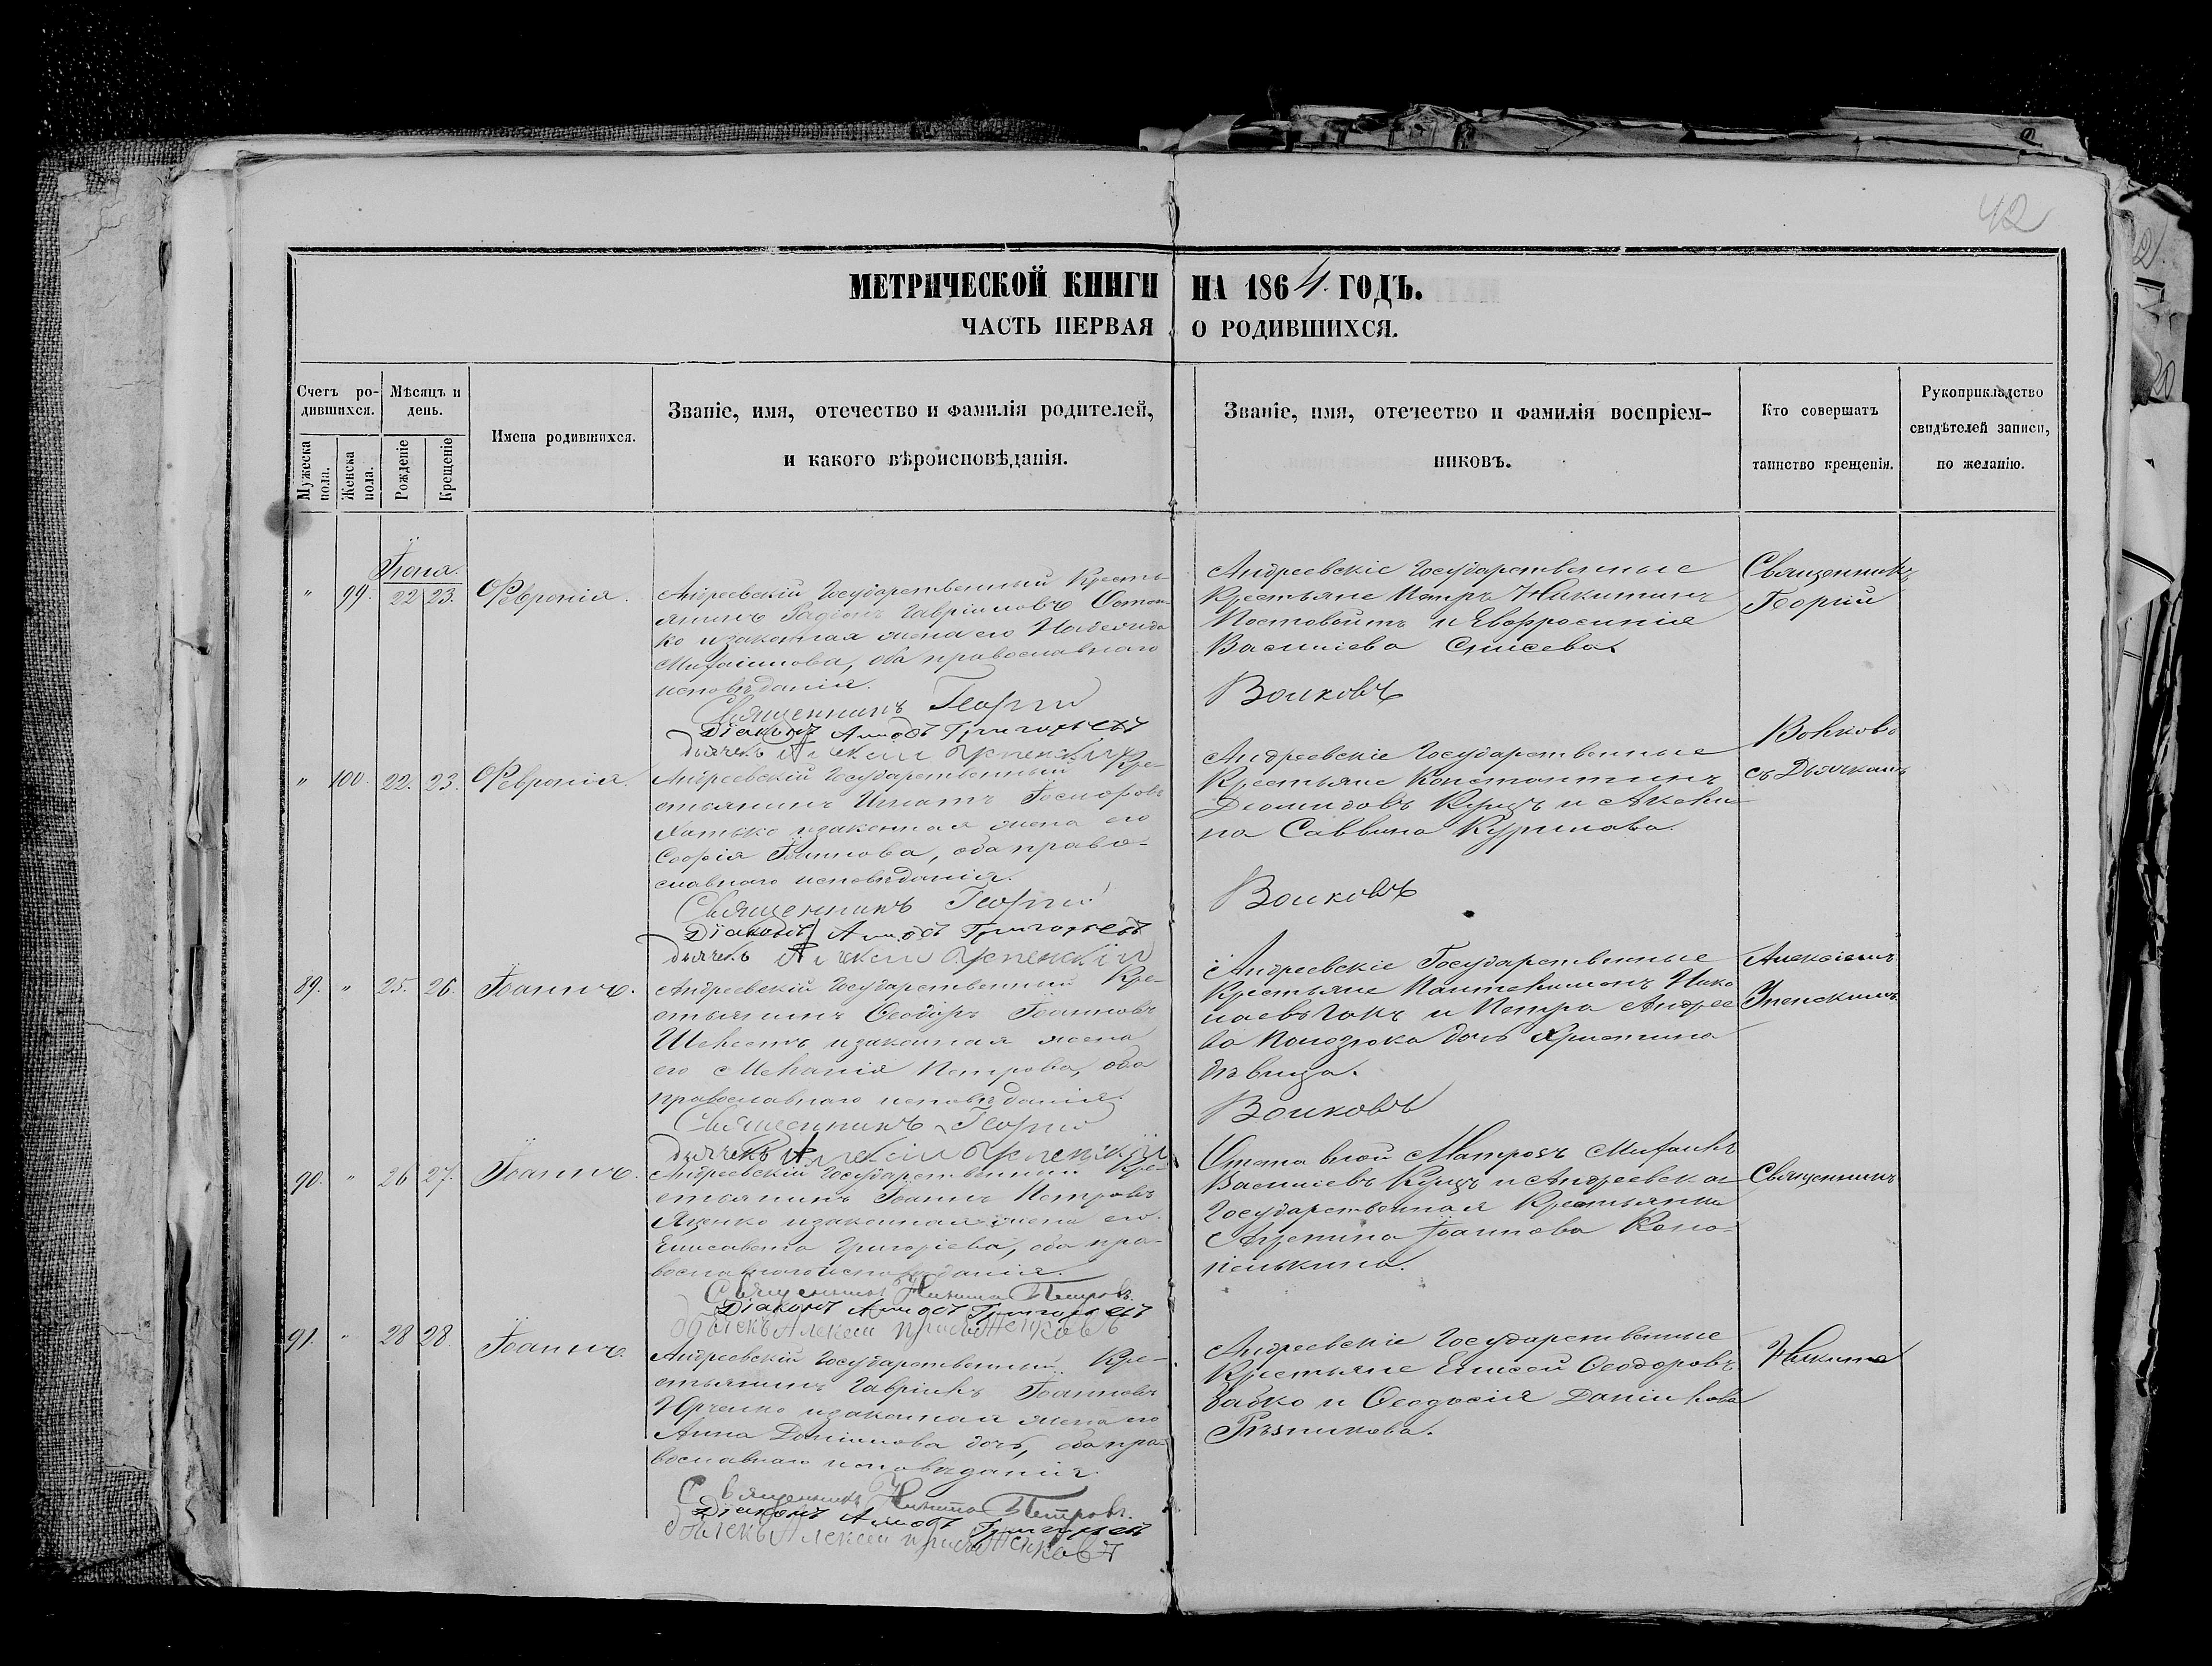 42
МЕТРИЧЕСКОЙ КНИГИ НА 1864 ГОДЪ.
ЧАСТЬ ПЕРВАЯ О РОДИВШИХСЯ.
Счетъ ро-
дившихся.
Мужеска пола.
Женска пола.
Мѣсяцъ и
день.
Рожденіе
Крещеніе
Имена родившихся.
Званіе, имя, отечество и фамилія родителей,
и какого вѣроисповѣданія.
Званіе, имя, отечество и фамилія воспріем-
никовъ.
Кто совершатъ
таинство крещенія.
Рукоприкладство
свидѣтелей записи,
по желанію.
Іюня.
" 99. 22 23. Февронія.
Андреевскій Государственный Кресть-
янинъ Радіонъ Гавріиловъ
ко и законная жена его Надежда
Михаилова, оба православнаго
исповѣданія.
Священникъ Георгій
Діаконъ Амосъ Григорьевъ
дьячекъ Алексій Успенскій
Андреевскіе Государственные
Крестьяне Петръ Никитинъ
Постовойтъ и Евфросинія
Василіева
Волковъ
Священникъ
Георгій
" 100. 22. 23. Февронія.
Андреевскій Государственный Кре-
стьянинъ Игнатъ
Хотько и законная жена его
Софія Іоаннова, оба право-
славнаго исповѣданія.
Священникъ Георгій
Діаконъ Амосъ Григорьевъ
дьячекъ Алексій Успенскій
Андреевскіе Государственные
Крестьяне Константинъ
Діомидовъ Куцъ и Акели-
на Саввина Курилова.
Волковъ
Волковъ
съ Дьячкомъ
89. " 25. 26. Іоаннъ.
Андреевскій Государственный Кре-
стьянинъ Ѳеодоръ Іоанновъ
Шелестъ и законная жена
его Меланія Петрова, оба
православнаго исповѣданія.
Священникъ Георгій
дьячекъ Алексій Успенскій
Андреевскіе Государственные
Крестьяне Пантелимонъ Нико
лаевъ Гокъ и Петра Андрее
ва дочь Христина
дѣвица.
Волковъ
Алексіемъ
Успенскимъ
90. " 26 27. Іоаннъ.
Андреевскій Государственный Кре-
стьянинъ Іоаннъ Петровъ
Яценко и законная жена его
Елисавета Григоріева, оба пра-
вославнаго исповѣданія.
Священникъ Никита Петровъ.
Діаконъ Амосъ Григорьевъ
дьячекъ Алексей
Отставной Матрозъ Михаилъ
Василіевъ Куцъ и Андреевская
Государственная Крестьянка
Агрепина Іоаннова Коно-
пелькина.
Священникъ
91. " 28 28. Іоаннъ.
Андреевскій Государственный Кре-
стьянинъ Гавріилъ Іоанновъ
Юрченко и законная жена его
Анна Даніилова дочь, оба пра-
вославнаго исповѣданія.
Священникъ Никита Петровъ.
Діаконъ Амосъ Григорьевъ
дьячекъ Алексей
Андреевскіе Государственные
Крестьяне Елисей Ѳеодоровъ
Бабко и Ѳеодосія Даніилова
Рѣзникова.
Никита